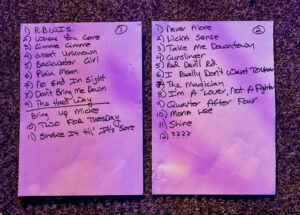 1
1) R.B.W.I.S.
2) When You Come
3) Gimme Gimme
4) Great Unknown
5) Backwater Girl
6) Plain Mean
7) No End In Sight
8) Don't Bring Me Down
9) The Hard Way
Bring up Mickee
10) TWO FOR TUESDAY
11) Shake It til' It's Sore
2
1) Never Alone
2) Licks Sense
3) Take Me Downtown
4) Gunslinger
5) Red Devil Rd.
6) I Really Don't Want To Know
7) The Magician
8) I'm A Lover, Not A Fighter
9) Quarter After Four
10) Mona Lee
11) Shine
12) ????